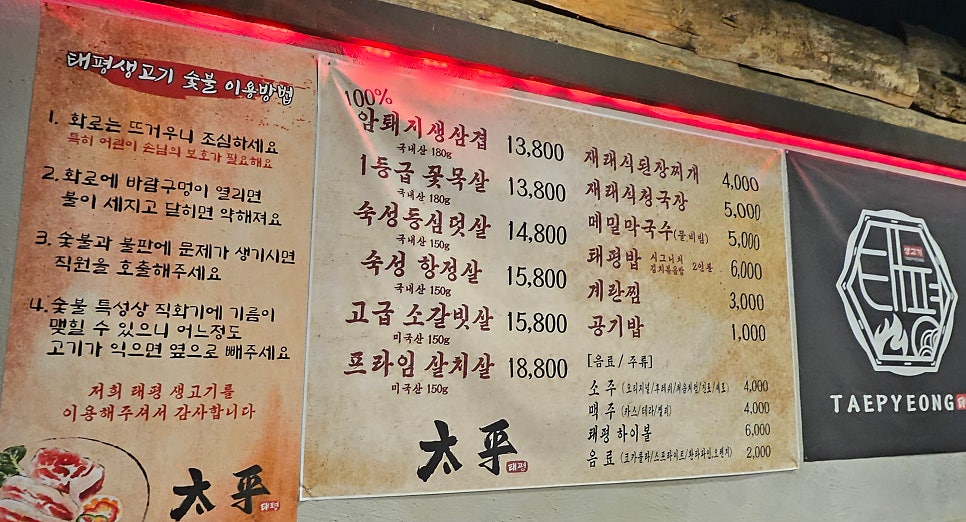 태평생고기 숯불 이용방법
1. 화로는 뜨거우니 조심하세요
특히 어린이 손님의 보호가 필요해요
2. 화로에 바람구멍이 열리면
불이 세지고 닫히면 약해져요
3. 숯불과 불판에 문제가 생기시면
직원을 호출해주세요
4. 숯불 특성상 직화기에 기름이
맺힐 수 있으니 어느정도
고기가 익으면 옆으로 빼주세요
저희 태평 생고기를
이용해주셔서 감사합니다
太平
태평
100%
암퇘지생삼겹 13,800
국내산 180g
1등급 꽃목살 13,800
국내산 180g
숙성등심덧살 14,800
국내산 150g
숙성 항정살 15,800
국내산 150g
고급 소갈빗살 15,800
미국산 150g
프라임 살치살 18,800
미국산 150g
太平
태평
재래식된장찌개 4,000
재래식청국장 5,000
메밀막국수(물/비빔) 5,000
태평밥 시그니처 김치볶음밥 2인분 6,000
계란찜 3,000
공기밥 1,000
[음료/주류]
소주 (오리지널/후레쉬/처음처럼/진로/새로) 4,000
맥주 (카스/테라/켈리) 4,000
태평 하이볼 6,000
음료 (코카콜라/스프라이트/환타파인,오렌지) 2,000
태평
생고기
TAEPYEONG